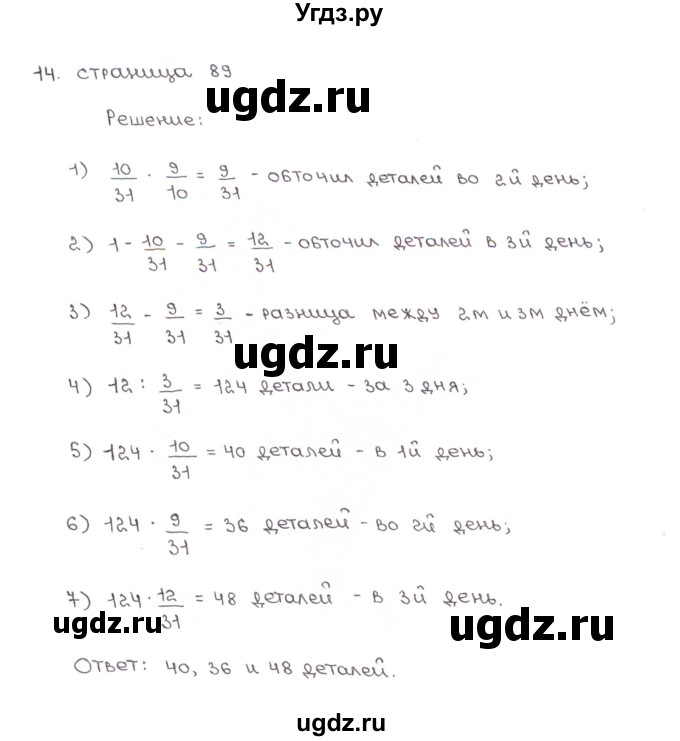 Угдз.ру
14. страница 89
ugdz.ru
Решение:
1) 10/31 · 9/10 = 9/31 - обточил деталей во 2й день;
2) 1 - 10/31 - 9/31 = 12/31 - обточил деталей в 3й день;
3) 12/31 - 9/31 = 3/31 - разница между 2м и 3м днём;
ugdz.ru
4) 12 : 3/31 = 124 детали - за 3 дня;
5) 124 · 10/31 = 40 деталей - в 1й день;
6) 124 · 9/31 = 36 деталей - во 2й день;
7) 124 · 12/31 = 48 деталей - в 3й день.
ugdz.ru
ugdz.ru
Ответ: 40, 36 и 48 деталей.
ugdz.ru